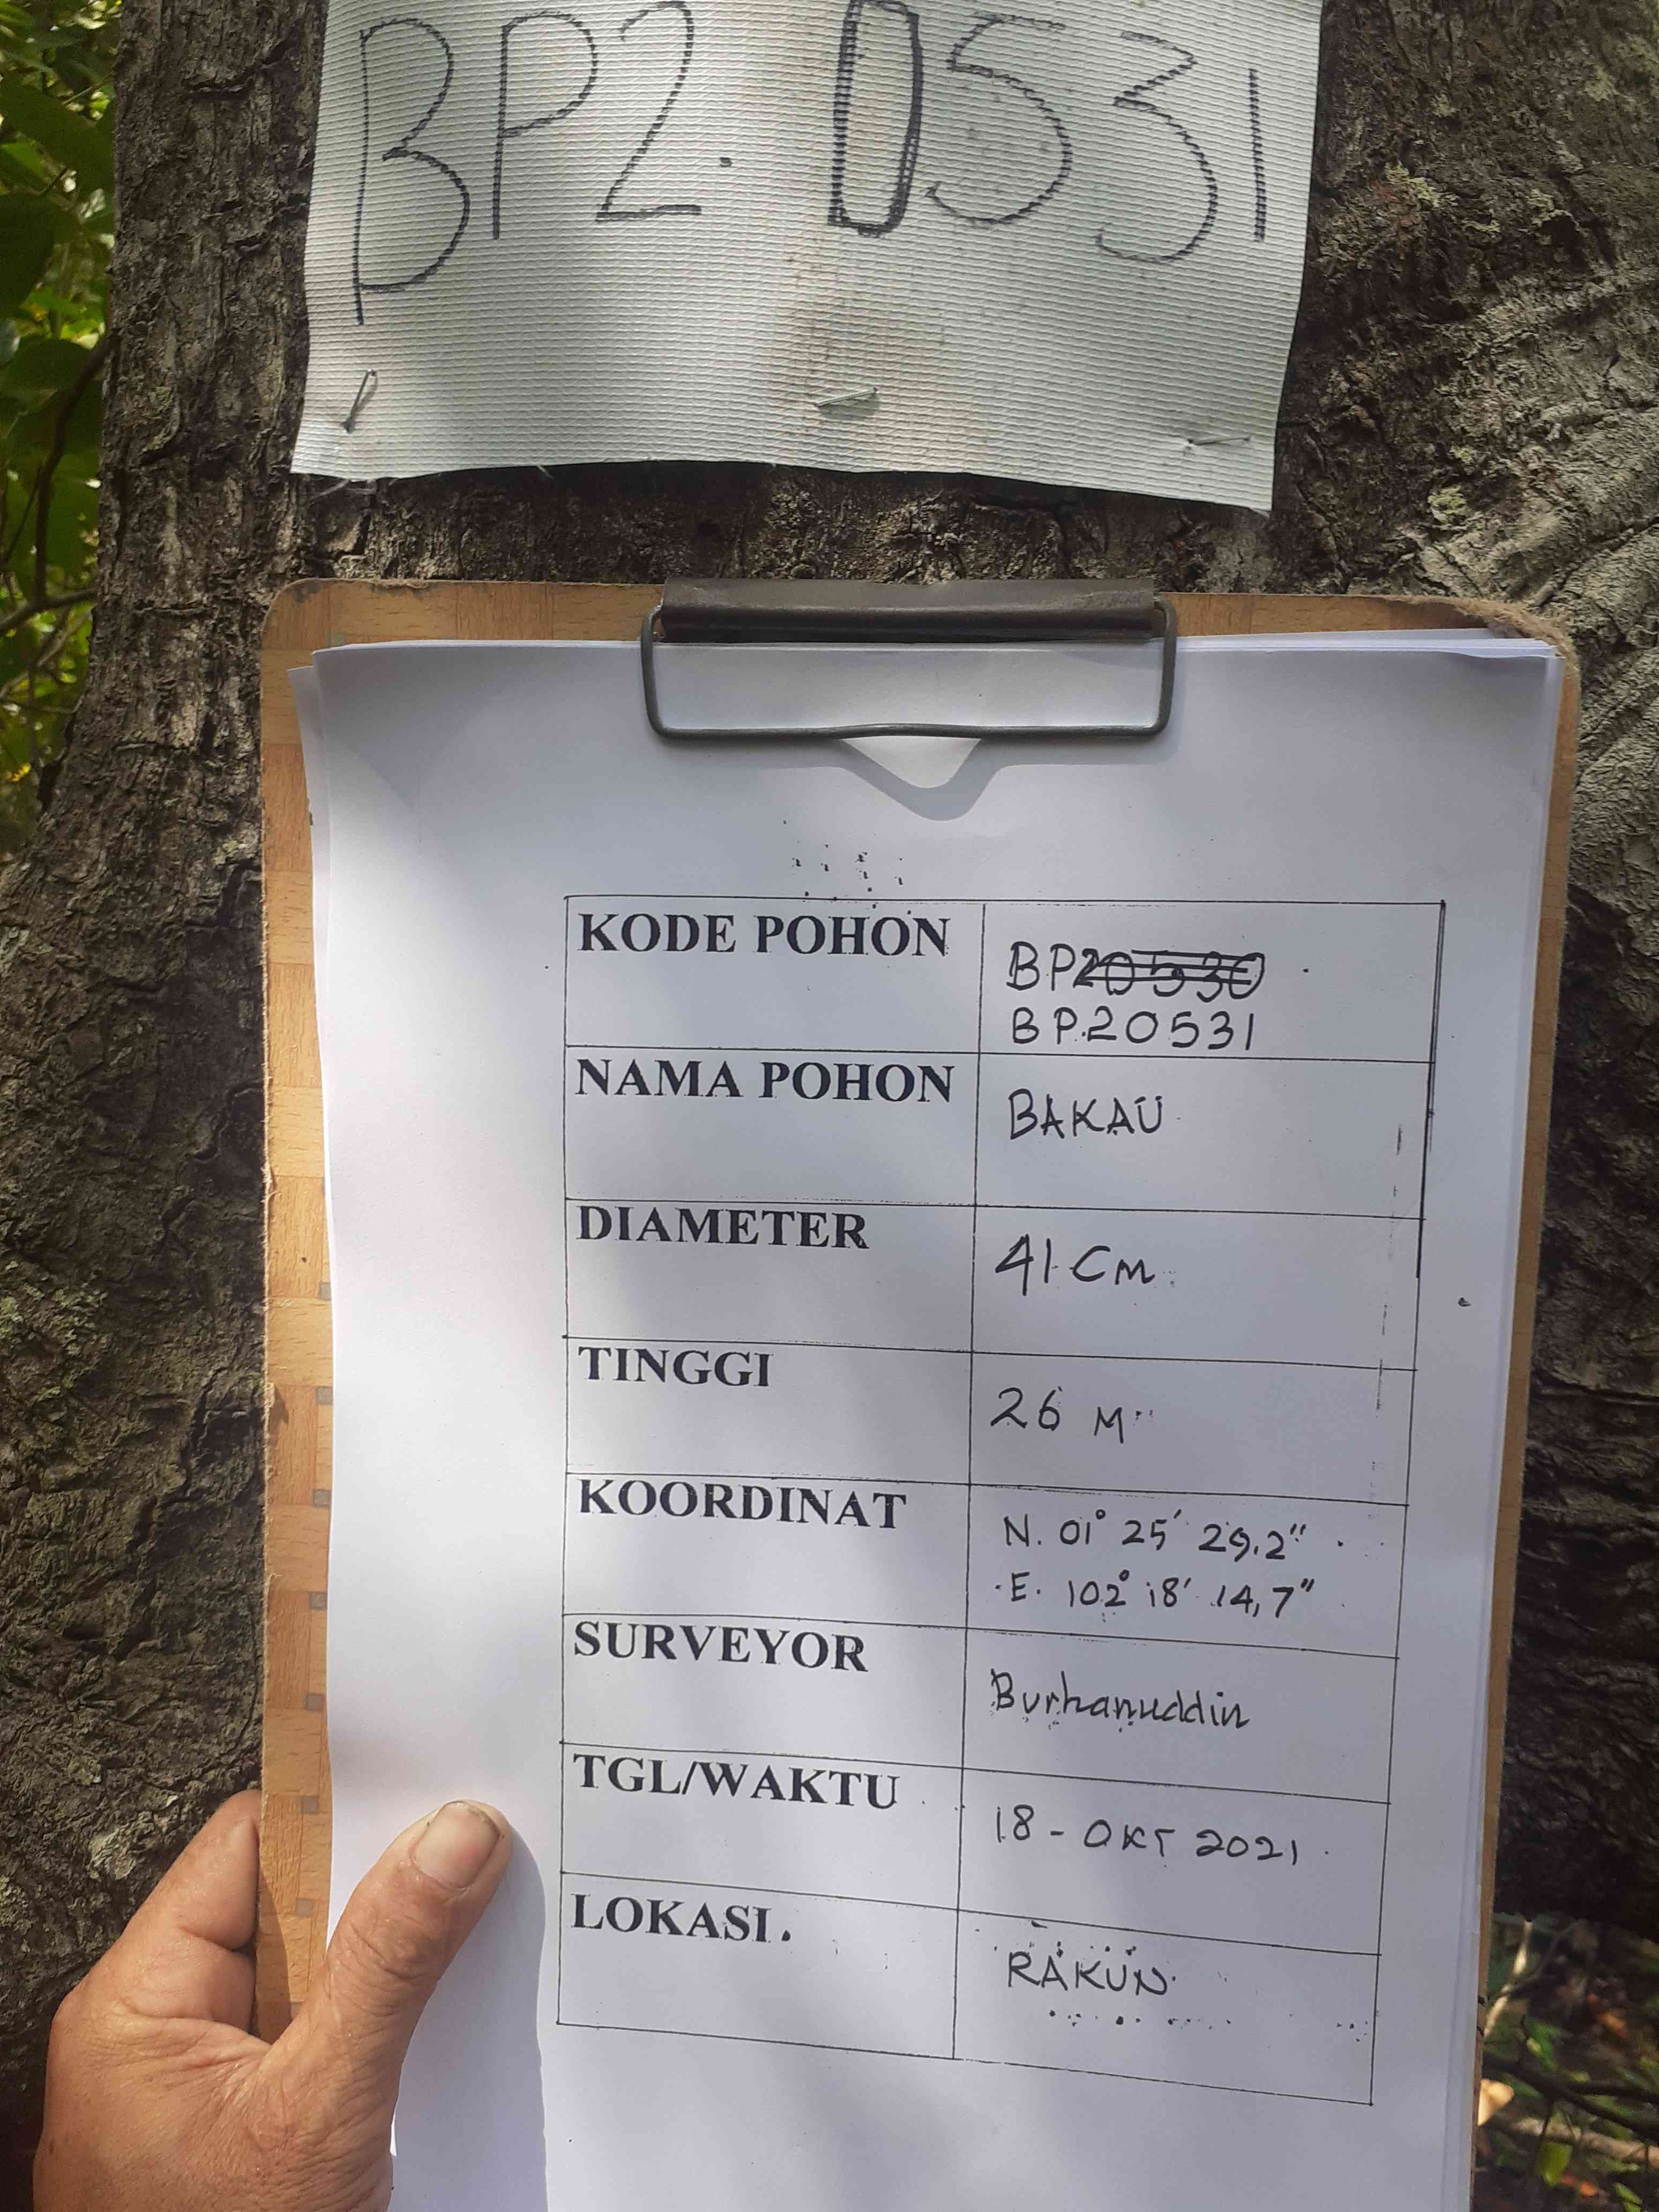 BP2.0531
KODE POHON
BP20530
BP.20531
NAMA POHON
BAKAU
DIAMETER
41 Cm
TINGGI
26 M
KOORDINAT
N. 01° 25' 29,2"
E. 102° 18' 14,7"
SURVEYOR
Burhanuddin
TGL/WAKTU
18 - OKT 2021
LOKASI.
RAKUN